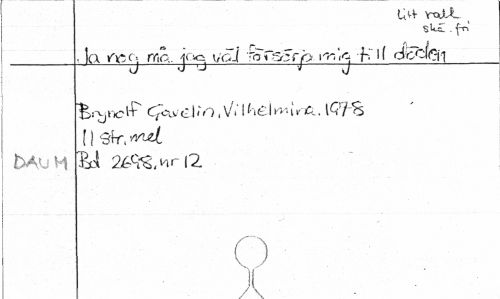 Litt vall
skä. fri
Ja nog må jag väl försörja mig till döden
Brynolf Gavelin, Vilhelmina, 1978
11 str, mel
DAUM Bd 2698, nr 12